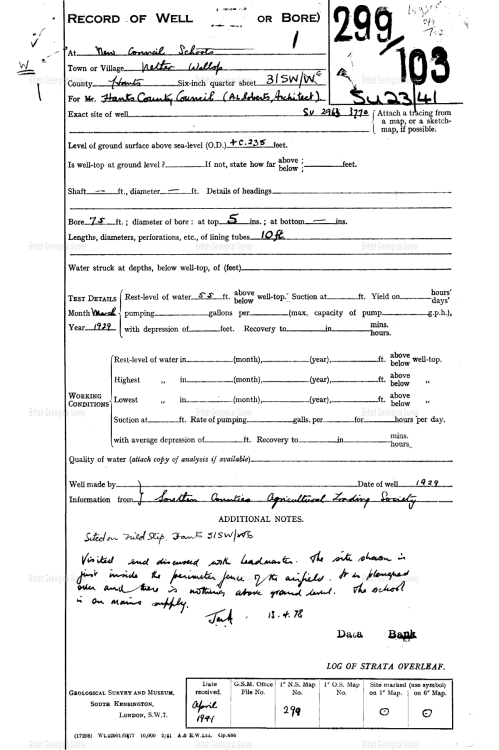 RECORD OF WELL OR BORE)
1
299
103
SU23/41
At New Council Schools
Town or Village Nether Wallop
County Hants Six-inch quarter sheet 31SW/W
For Mr. Hants County Council (A.L. Roberts, Architect)
Exact site of well SU 2963 3770
Attach a tracing from a map, or a sketch-map, if possible.
Level of ground surface above sea-level (O.D.) +C.235 feet.
Is well-top at ground level? If not, state how far above below ; feet.
Shaft — ft., diameter — ft. Details of headings
Bore 75 ft.; diameter of bore: at top 5 ins.; at bottom — ins.
Lengths, diameters, perforations, etc., of lining tubes 10ft
Water struck at depths, below well-top, of (feet)
TEST DETAILS Rest-level of water 55 ft. above below well-top. Suction at ft. Yield on hours' days'
Month March pumping gallons per (max, capacity of pump g.p.h.),
Year 1929 with depression of feet. Recovery to in mins. hours.
Rest-level of water in (month), (year), ft. above below well-top.
Highest „ in (month), (year), ft. above below „
WORKING CONDITIONS
Lowest „ in (month), (year), ft. above below „
Suction at ft. Rate of pumping galls. per for hours per day.
with average depression of ft. Recovery to in mins. hours
Quality of water (attach copy of analysis if available)
Well made by Date of well 1929
Information from Southern Counties Agricultural Trading Society
ADDITIONAL NOTES.
Sited on Field Slip, Hants 31SW/
Visited and discussed with headmaster. The site shown is
just inside the perimeter fence of the airfield. It is ploughed
over and there is nothing above ground level. The school
is on mains supply.
13.4.78
Data Bank
LOG OF STRATA OVERLEAF.
GEOLOGICAL SURVEY AND MUSEUM,
SOUTH KENSINGTON,
LONDON, S.W.7.
Date received. G.S.M. Office File No. 1" N.S. Map No. 1" O.S. Map No. Site marked (use symbol) on 1" Map. on 6" Map.
April 1941 299
(17208) Wt.42901/0477 10,000 2/41 A & E.W.Ltd. Gp.686
British Geological Survey